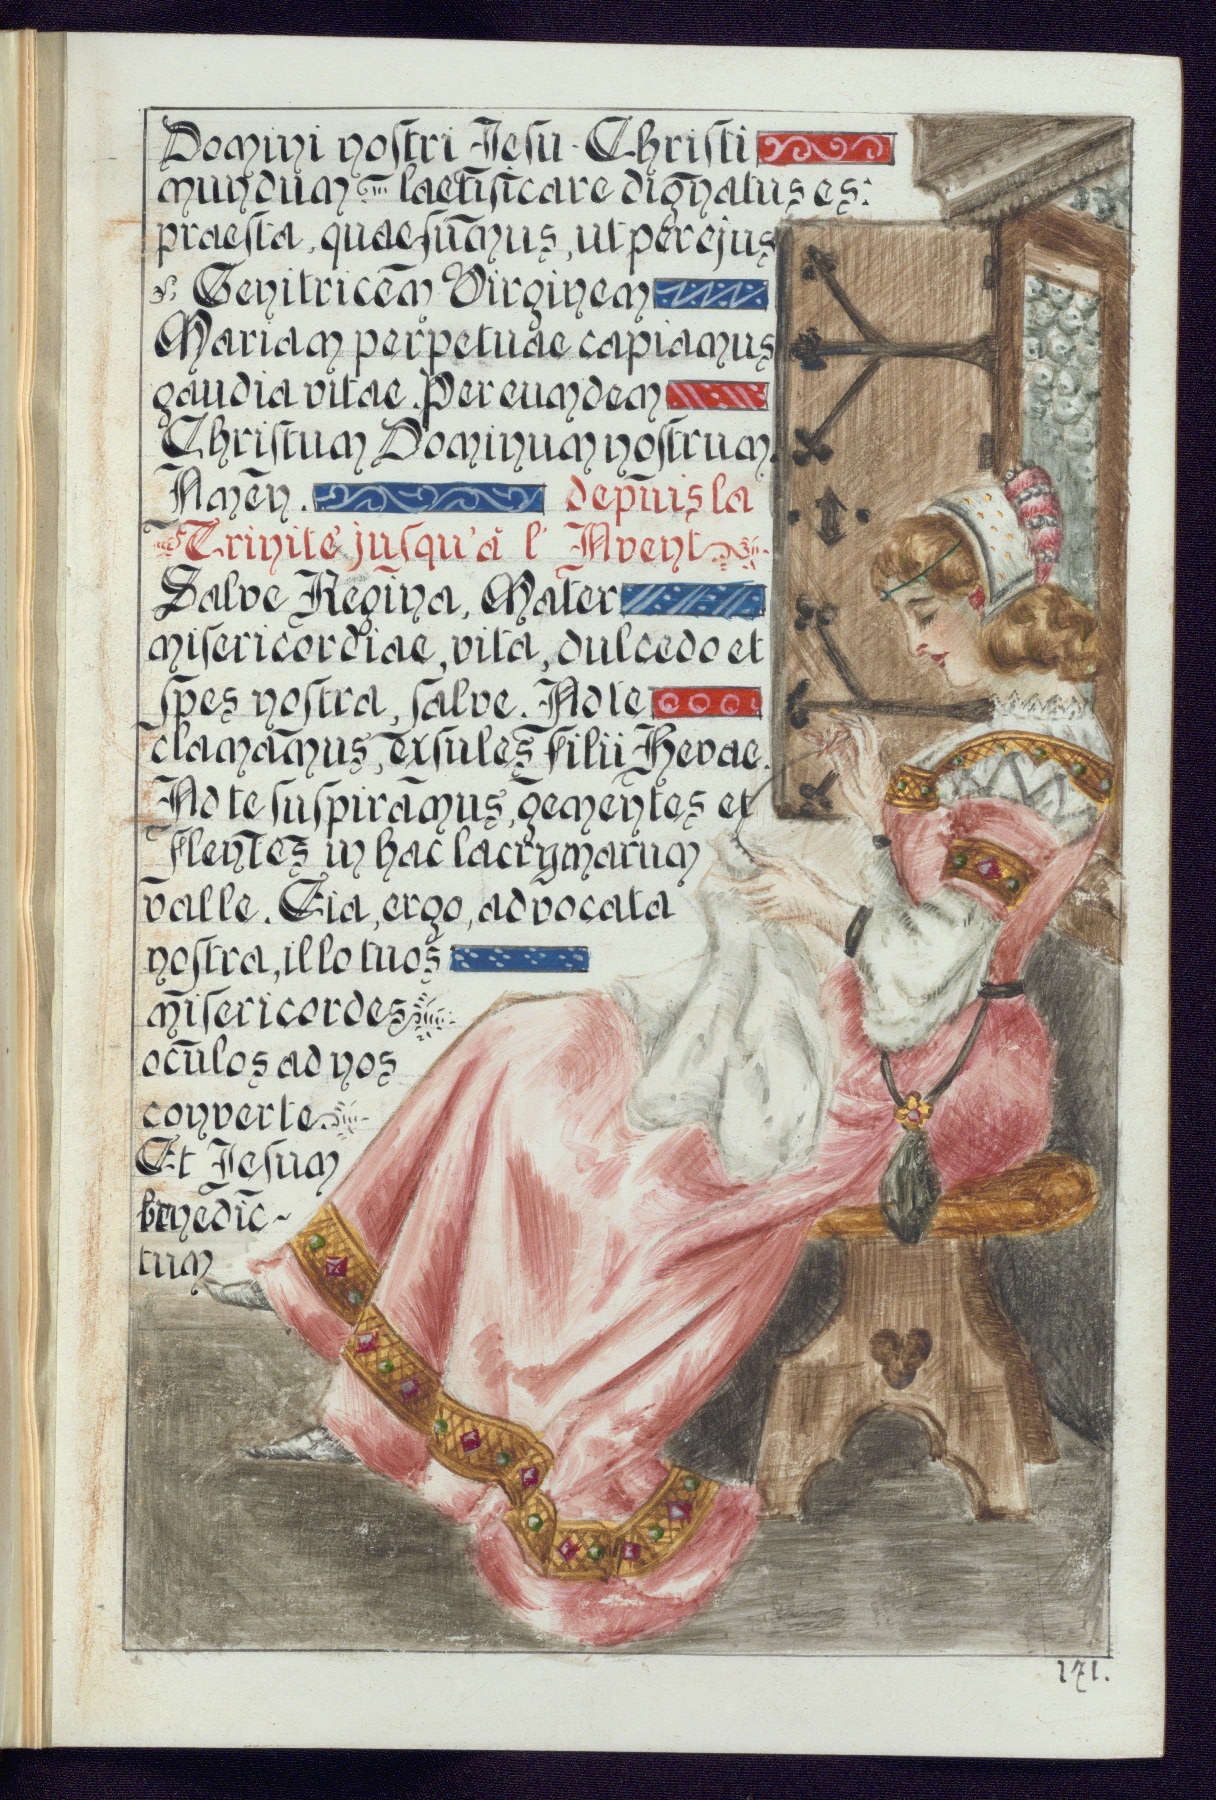 Domini nostri Jesu-Christi
mundum laetificare dignatus es:
praesta, quaesumus, ut per ejus
Genitricem Virginem
Mariam perpetuae capiamus
gaudia vitae. Per eumdem
Christum Dominum nostrum.
Amen. depuis la
Trinité jusqu'à l'Avent
Salve Regina, Mater
misericordiae, vita, dulcedo et
spes nostra, salve. Ad te
clamamus, exsules filii Hevae.
Ad te suspiramus, gementes et
flentes in hac lacrymarum
valle. Eia, ergo, advocata
nostra, illo tuos
misericordes
oculos ad nos
converte.
Et Jesum
benedic-
tum
171.